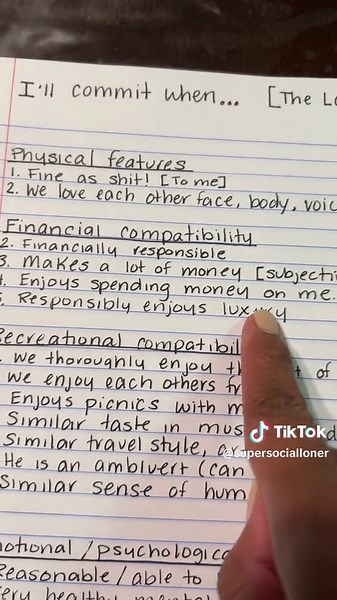 I'll commit when... [The Lo
Physical features
1. Fine as shit! [To me]
2. We love each other face, body, voic
Financial compatibility
2. Financially responsible
3. Makes a lot of money [subjecti
4. Enjoys spending money on me.
5. Responsibly enjoys luxury
Recreational compatibil
We thoroughly enjoy th of
We enjoy each others fr
Enjoys picnics with m
Similar taste in mus
Similar travel style,
He is an ambivert (can
Similar sense of hum
TikTok
@supersocialloner
notional / psychologica
Reasonable / able to
very healthy mental